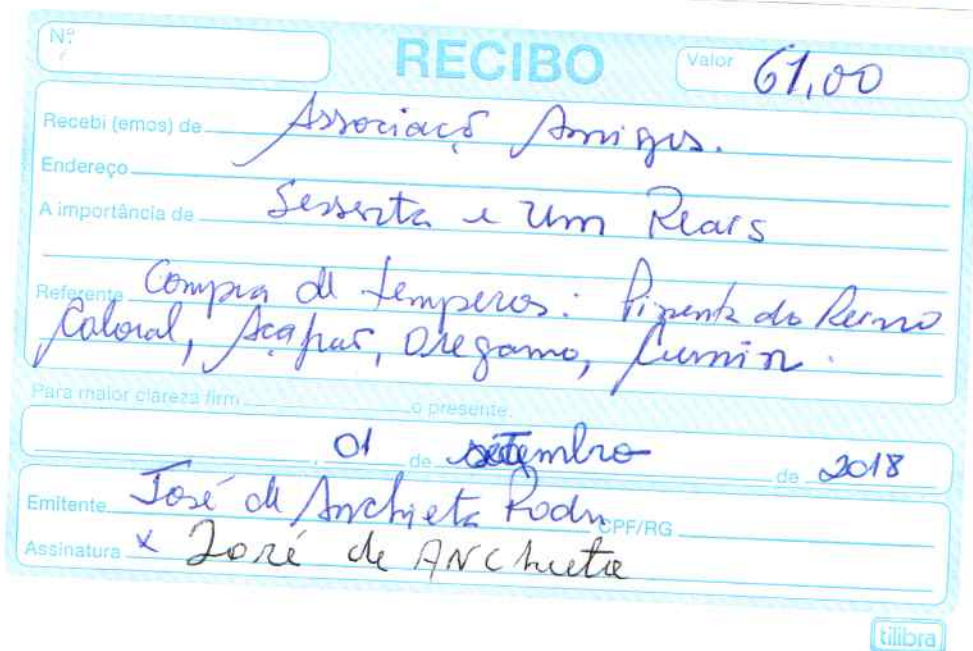 Nº
RECIBO
Valor 61,00
Recebi (emos) de Associaçõ Amigos.
Endereço
A importância de Sessenta e Um Reais
Referente Compra de temperos: Pimenta do Reino
Coloral, Açafrão, Oregamo, Cumin.
Para maior clareza firm o presente.
01 de setembro de 2018
Emitente José de Anchieta Rodr CPF/RG
Assinatura x José de ANChieta
tilibra